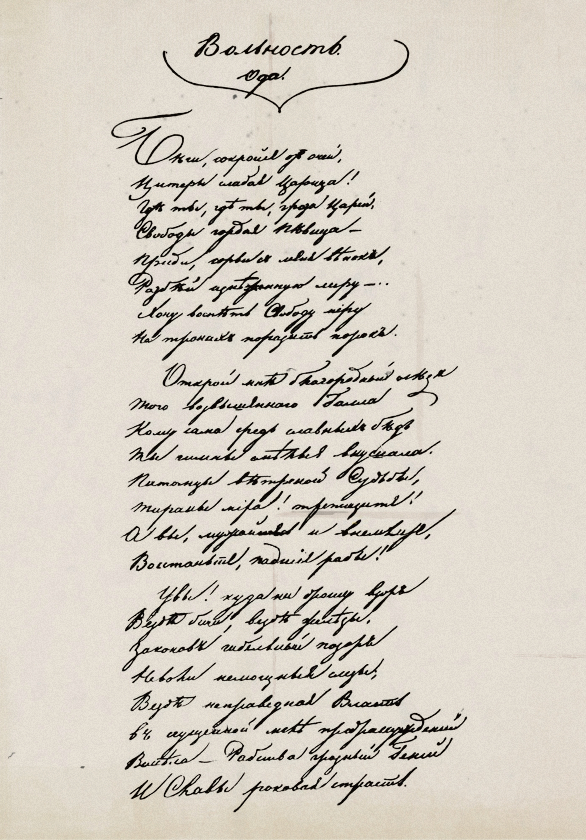 Вольность.
Ода.
Бѣги, сокройся отъ очей,
Цитеры слабая Царица!
Гдѣ ты, гдѣ ты, гроза Царей,
Свободы гордая Пѣвица —
Приди, сорви съ меня вѣнокъ,
Разбей изнѣженную лиру — ..
Хочу воспѣть Свободу міру
На тронахъ поразить порокъ.
Открой мнѣ благородный слѣдъ
Того возвышеннаго Галла
Кому сама средь славныхъ бѣдъ
Ты гимны смѣлыя внушала.
Питомцы вѣтреной Судьбы,
Тираны міра! трепещите!
А вы, мужайтесь и внемлите,
Возстаньте, падшіе рабы!
Увы! куда ни брошу взоръ
Вездѣ бичи, вездѣ желѣзы,
Законовъ гибельный позоръ
Неволи немощныя слезы;
Вездѣ неправедная Власть
Въ сгущенной мглѣ предразсужденій
Возсѣла — Рабства грозный Геній
И Славы роковая страсть.